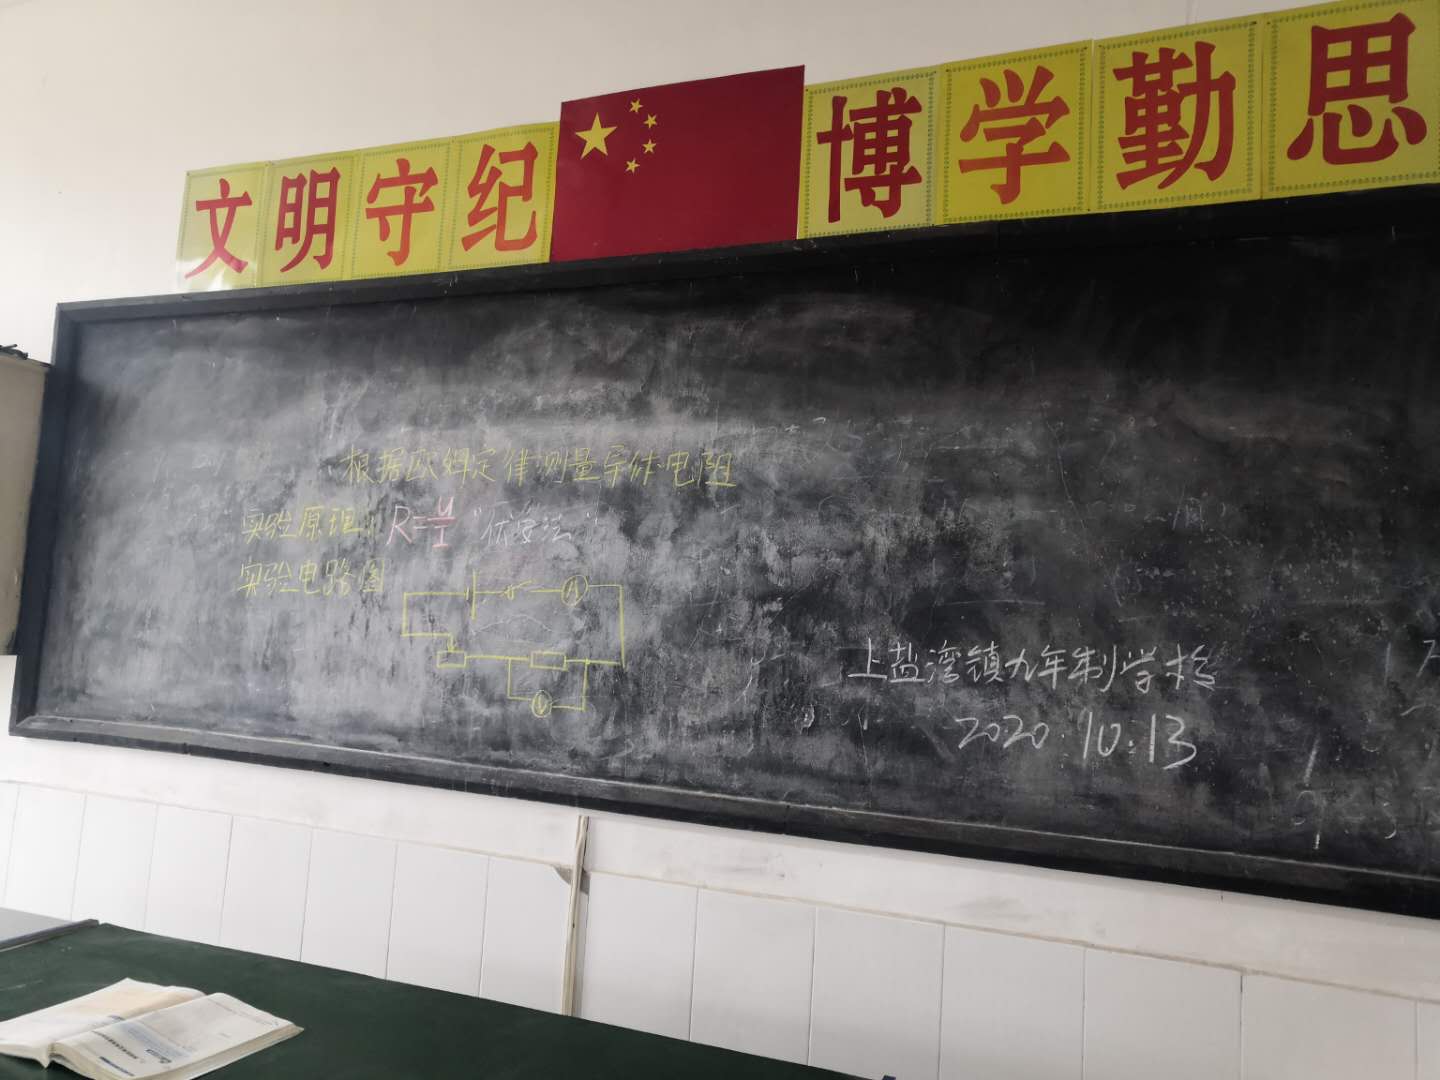 文明守纪 博学勤思
根据欧姆定律测量导体电阻
实验原理: R=U/I "伏安法"
实验电路图
A
V
上盐湾镇九年制学校
2020.10.13